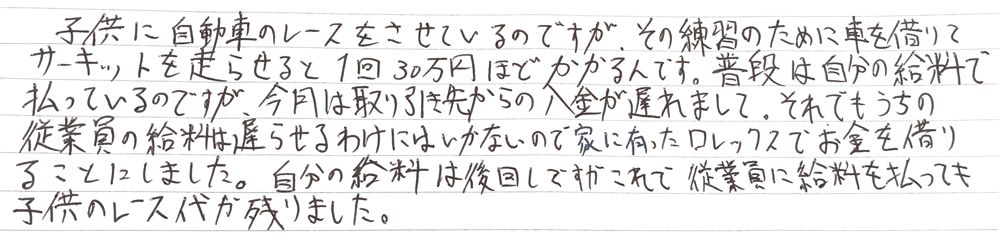 子供に自動車のレースをさせているのですが、その練習のために車を借りて
サーキットを走らせると1回30万円ほどかかるんです。普段は自分の給料で
払っているのですが、今月は取り引き先からの入金が遅れまして。それでもうちの
従業員の給料は遅らせるわけにはいかないので家に有ったロレックスでお金を借り
ることにしました。自分の給料は後回しですがこれで従業員に給料を払っても
子供のレース代が残りました。